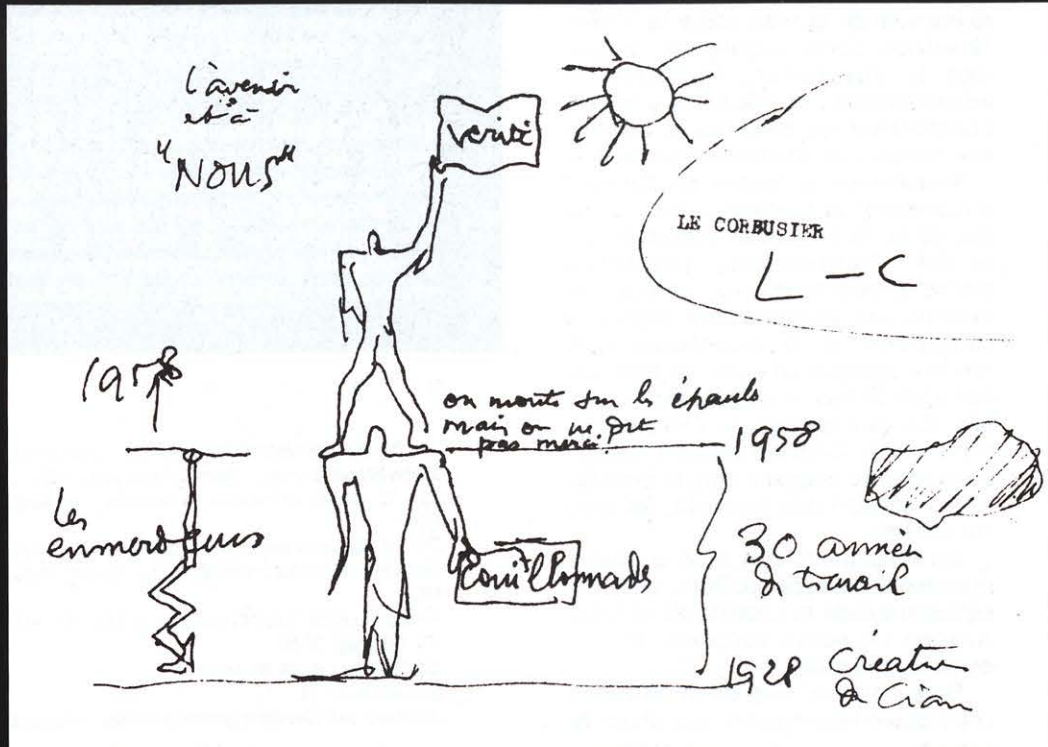 l'avenir
et à
"NOUS"
verité
LE CORBUSIER
L-C
1958
on monte sur les épaules
mais on ne dit
pas merci.
1958
les
enmerdeurs
couillonnade
30 années
de travail
1928 Création
de Ciam